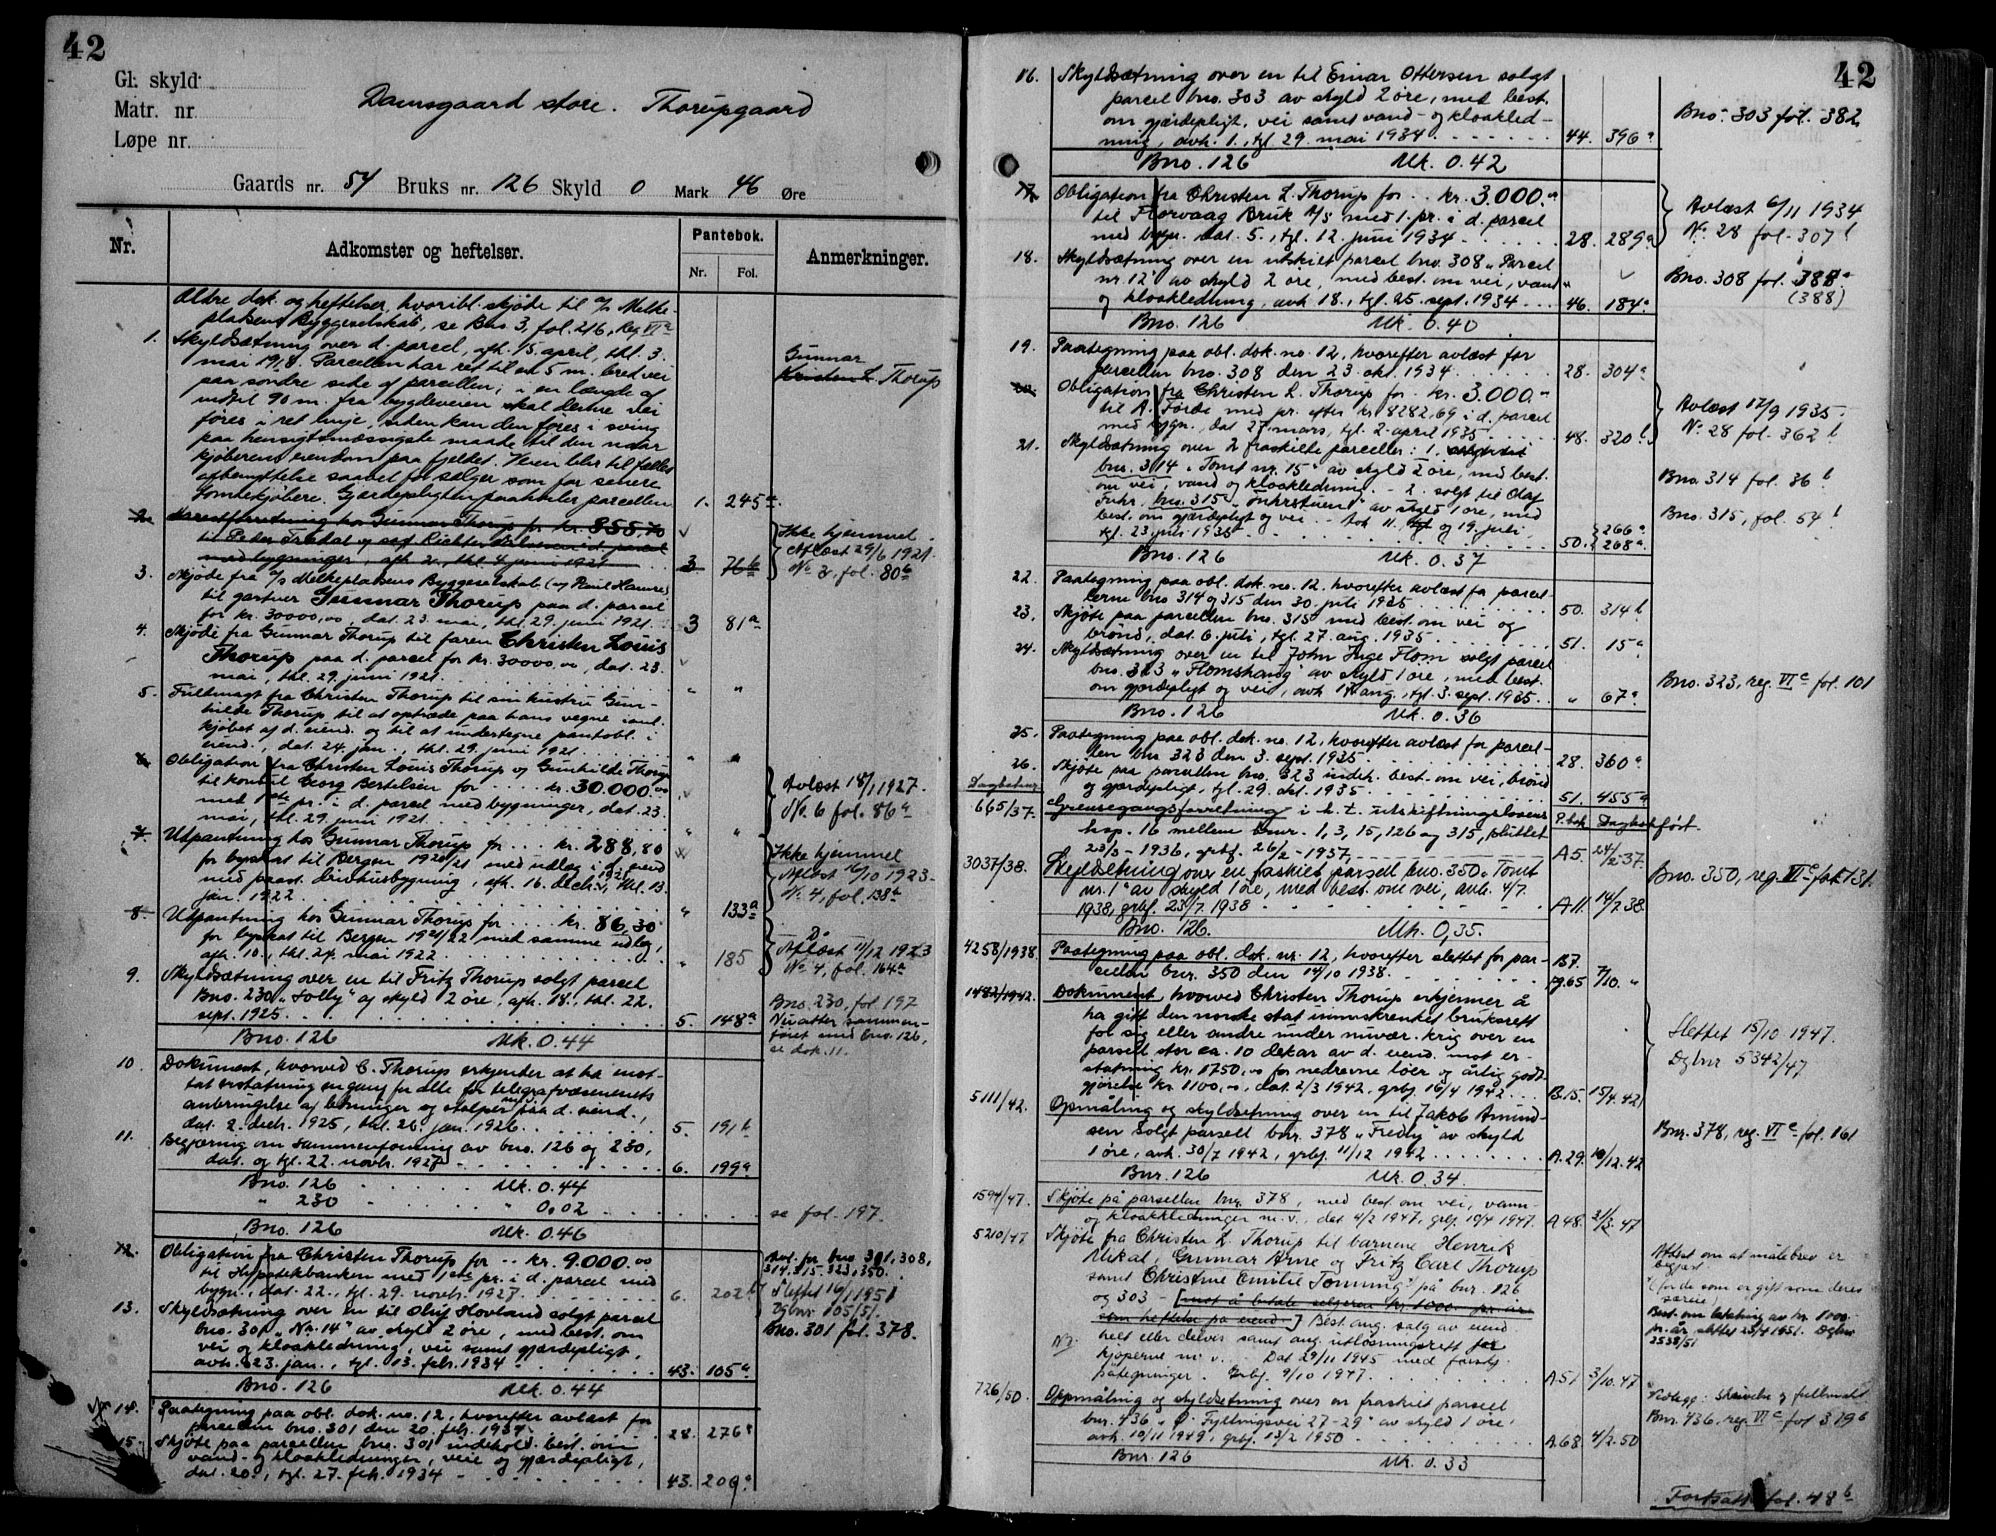 42
Gl. skyld
Matr. nr.
Løpe nr.
Damsgaard store. Thorupgaard
Gaards nr. 54 Bruks nr. 126 Skyld 0 Mark 46 Øre
Nr. Adkomster og heftelser. Pantebok. Nr. Fol. Anmerkninger.
Ældre dok. og heftelser, hvoribl. skjøde til A/S Melke-
plassens Byggeselskab, se Bno 3, fol. 216, reg. VI a
1. Skyldsætning over d. parcel, afh. 15. april, thl. 3.
mai 1918. Parcellen har ret til en 5 m. bred vei
paa søndre side af parcellen; i en længde af
indtil 90 m. fra bygdeveien skal denne vei
føres i ret linje, siden kan den føres i sving
paa hensigtsmæssigste maade til den nabo
kjøberens eiendom paa fjeldet. Veien blir til fælles
afbenyttelse saavel for sælger som for senere
tomtekjøbere. Gjærdepligten paahviler parcellen 1. 245 a
Gunnar
Kristen L. Thorup
2. Arrestforretning hos Gunnar Thorup for kr. 855,70
til Peder Tredal og
med bygninger, afh. 2., thl. 4. juni 1921 3 76 b
Ikke hjemmel
Aflæst 29/6 1921.
No 3. fol. 80 b
3. Skjøde fra A/S Melkeplassens Byggeselskab (v/ Paul Hamre)
til gartner Gunnar Thorup paa d. parcel
for kr. 30000,00, dat. 23. mai, thl. 29. juni 1921. 3 81 a
4. Skjøde fra Gunnar Thorup til faren Christen Louis
Thorup paa d. parcel for kr. 30000,00, dat. 23.
mai, thl. 29. juni 1921. " "
5. Fuldmagt fra Christen Thorup til sin hustru Gun-
hilde Thorup til at optræde paa hans vegne i anl.
kjøbet af d. eiend. og til at undertegne pantobl. i
eiend., dat. 24. jan., thl. 29. juni 1921 " "
6. Obligation fra Christen Louis Thorup og Gunhilde Thorup
til konsul Georg Bertelsen for kr. 30.000,00
med 1ste pr. i d. parcel med bygninger, dat. 23.
mai, thl. 29. juni 1921 " "
Avlæst 15/1 1927.
No. 6 fol. 86 a
7. Utpantning hos Gunnar Thorup for kr. 288,80
for byskat til Bergen 1920/21 med udlæg i d. eiend
med paast. drivhusbygning, afh. 16. decbr. 1921, thl. 13.
jan. 1922 " 133 a
Ikke hjemmel
Aflæst 16/10 1923.
No. 4, fol. 138 a
8. Utpantning hos Gunnar Thorup for kr. 86,30
for byskat til Bergen 1921/22 med samme udlæg,
afh. 10., thl. 24. mai 1922 " 185
Do
Aflæst 11/12 1923
No 4, fol. 164 a
9. Skyldsætning over en til Fritz Thorup solgt parcel
Bno. 230 „Solly" af skyld 2 øre, afh. 18., thl. 22.
sept. 1925 5. 148 a
Bno. 230, fol 197
Nu atter sammen-
føiet med bno. 126,
se dok. 11.
Bno. 126 Mk. 0.44
10. Dokument, hvorved C. Thorup erkjender at ha mot-
tat erstatning en gang for alle for telegrafvæsenets
anbringelse af ledninger og stolper m.v. paa d. eiend.,
dat. 2. decbr. 1925, thl. 26. jan. 1926 5. 191 b
11. Begjæring om sammenføining av bno. 126 og 230,
dat. og tgl. 22. novbr. 1927 6. 199 a
Bno. 126 Mk. 0.44
" 230 " 0,02
se fol. 197.
Bno. 126 Mk. 0.46
12. Obligation fra Christen Thorup for kr. 9.000.00
til Hypotekbanken med 1ste pr. i d. parcel med
bygn., dat. 22., tgl. 29. novbr. 1927 6. 202 b
Avl. for bno. 301, 308,
314, 315. 323, 350.
Slettet 16/1 1951
Dgbnr 105/51.
13. Skyldsætning over en til Oluf Hovland solgt parcel
bno. 301 „No. 14" av skyld 2 øre, med best. om
vei og kloakledning, vei samt gjærdepligt,
avh. 23. jan., tgl. 13. febr. 1934 43. 105 a
Bno. 301 fol. 378.
Bno. 126 Mk. 0.44
14. Paategning paa obl. dok. no. 12, hvorefter avlæst for
parcellen bno. 301 den 20. febr. 1934 28. 276 a
15. Skjøte paa parcellen bno. 301 indehold. best. om
vand- og kloakledninger, veie og gjærdepligt,
dat. 20., tgl. 27. febr. 1934 43. 209 a
42
16. Skyldsætning over en til Einar Ottersen solgt
parcel bno. 303 av skyld 2 øre, med best.
om gjærdepligt, vei samt vand- og kloakled-
ning, avh. 1., tgl. 29. mai 1934 44. 396 a
Bno. 303 fol. 382
Bno. 126 Mk. 0.42
17. Obligation fra Christen L. Thorup for kr. 3.000.00
til Florvaag Bruk A/S med 1. pr. i d. parcel
med bygn. dat. 5., tgl. 12. juni 1934 28. 289 a
Avlæst 6/11 1934
No. 28 fol. 307 b
18. Skyldsætning over en utskilt parcel bno. 308 „Parcel
nr. 12" av skyld 2 øre, med best. om vei, vand-
og kloakledning, avh. 18., tgl. 25. sept. 1934 46. 184 a
Bno. 308 fol. 388 a
(388)
Bno. 126 Mk. 0.40
19. Paategning paa obl. dok. no. 12, hvorefter avlæst for
parcellen bno. 308 den 23. okt. 1934 28. 304 a
20. Obligation fra Christen L. Thorup for kr. 3.000.00
til A. Førde med pr. efter kr 8282,69 i d. parcel
med bygn., dat 27. mars, tgl. 2. april 1935 48. 320 b
Avlæst 17/9 1935.
No. 28 fol. 362 b
21. Skyldsætning over 2 fraskilte parceller: 1.
bno. 314 „Tomt nr. 15" av skyld 2 øre, med best.
om vei, vand og kloakledning. - 2. solgt til Olaf
Fuhr, bno. 315 av skyld 1 øre, med
best. om gjærdepligt og vei avh. 11. og 19. juli,
tgl. 23. juli 1935 50. 266 a 268 a
Bno. 314 fol. 36 b
Bno. 315, fol. 54 b
Bno. 126 Mk. 0.37
22. Paategning paa obl. dok. no. 12, hvorefter avlæst for parcel-
lerne bno 314 og 315 den 30. juli 1935 50. 314 b
23. Skjøte paa parcellen bno. 315 med best. om vei og
brønd, dat. 6. juli, tgl. 27. aug. 1935 51. 15 a
24. Skyldsætning over en til John Inge Flom solgt parcel
bno. 323 „Flomshaug" av skyld 1 øre, med best.
om gjærdepligt og vei, avh 17. aug., tgl. 3. sept. 1935 " 67 a
Bno. 323, reg. VI c fol. 101
Bno. 126 Mk. 0.36
25. Paategning paa obl. dok. no. 12, hvorefter avlæst for parcel-
len bno 323 den 3. sept. 1935 28. 360 a
26. Skjøte paa parcellen bno. 323 indeh. best. om vei, brønd
og gjærdepligt, tgl. 29. okt. 1935 51. 455 a
Dagboknr. P.bok Dagbokført.
665/37. Grensegangsforretning i h. t. utskiftningslovens
kap. 16 mellem bnr. 1, 3, 15, 126 og 315, sluttet
23/3 - 1936, grbf. 26/2 - 1937 A5. 24/2-37.
3037/38. Skyldsetning over en fraskilt parsell bno. 350 „Tomt
nr. 1" av skyld 1 øre, med best. om vei, avh. 4/7
1938, grbf. 23/7 1938 A11. 14/7.38.
Bno. 350, reg. VI c fol. 131.
Bno. 126. Mk. 0,35.
4258/1938. Paategning paa obl. dok. nr. 12, hvorefter slettet for par-
sellen bnr. 350 den 14/10 1938. B7. pg. 65 7/10. "
1482/1942. Dokument, hvorved Christen Thorup erkjenner å
ha gitt den norske stat innskrenket bruksrett
for sig eller andre under nuvær. krig over en
parsell stor ca. 10 dekar av d. eiend. mot er-
statning kr. 1750,00 for nedrevne løer og årlig godt-
gjørelse kr. 1100,00, dat. 2/3 1942, grbf. 16/4 1942 B.15. 15/4.42
Slettet 15/10 1947.
Dgbnr 5342/47
5111/42. Opmåling og skyldsetning over en til Jakob Amund-
sen solgt parsell bnr. 378 „Fredly" av skyld
1 øre, avh. 30/7 1942, grbf. 11/12 1942 A.29. 10/12.42
Bnr. 378, reg. VI c fol. 161
Bnr. 126 Mk 0.34.
1594/47. Skjøte på parsellen bnr. 378, med best om vei, vann-
og kloakkledninger m.v., dat 4/2 1947, grbf. 19/4 1947. A.48. 31/3.47
5210/47 Skjøte fra Christen L. Thorup til barnene Henrik
Mikal, Gunnar Arne og Fritz Carl Thorup
samt Christine Emilie Tomming på bnr. 126
og 303 - [mot å betale selgeren kr. 1000 pr. år
som heftelse på eiend.] Best. ang. salg av eiend
helt eller delvis samt ang. utløsningsrett for
kjøperne m. v. Dat 29/11 1945 med forsk.
påtegninger. Grbf. 9/10 1947. A.51 3/10.47
Attest om at målebrev er
begjært.
(for de som er gift som deres
særeie)
Best. om betaling av kr. 1000.
pr. år, slettet 25/4 1951. Dgbnr
2538/51
726/50. Oppmåling og skyldsetning over en fraskilt parsell
bnr. 436 „ Fyllingsvei 27-29" av skyld 1 øre,
avh. 10/11 1949, grbf. 13/2 1950 A.68 4/2.50
Vedlegg: Skrivelse og fullmakt
Bnr. 436, reg. VI c fol 379 b
Bnr. 126 Mk. 0.33
Fortsatt fol. 48 b